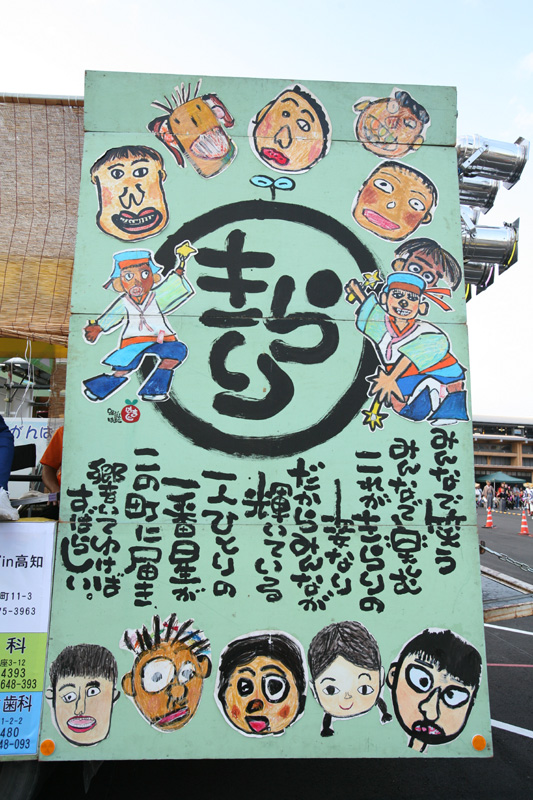 きらり
みんなで笑う
みんなで
これがきらりの
なり
だからみんなが
輝いている
一人ひとりの
一番星が
この町に届き
響いてゆけば
すばらしい。
がんば
in高知
町11-3
75-3963
科
座3-12
4393
648-393
歯科
1-2-2
480
48-093